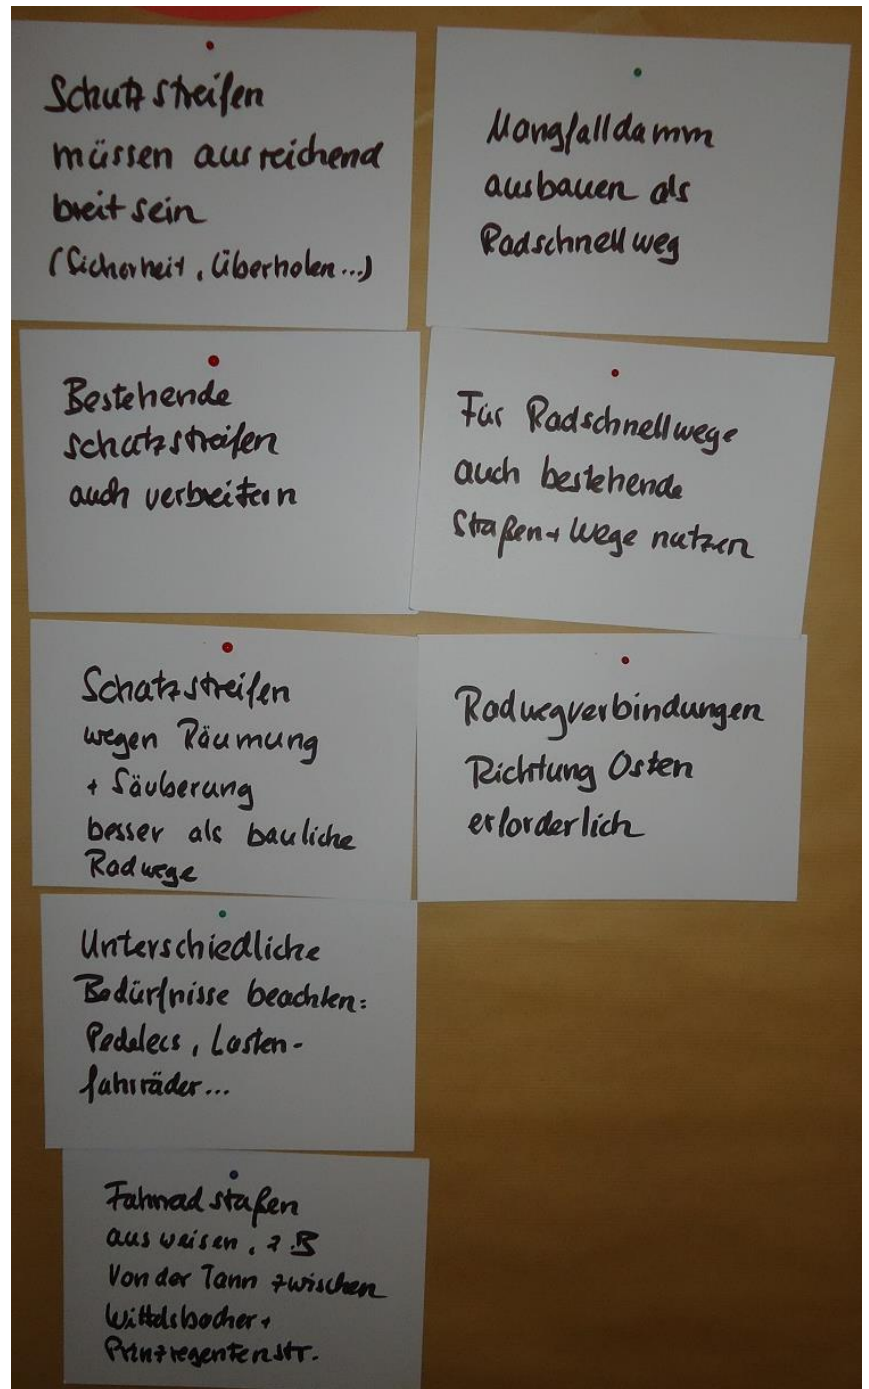 Schutzstreifen
müssen ausreichend
breit sein
(Sicherheit, Überholen...)
Bestehende
Schutzstreifen
auch verbreitern
Schutzstreifen
wegen Räumung
+ Säuberung
besser als bauliche
Radwege
Unterschiedliche
Bedürfnisse beachten:
Pedelecs, Lasten-
fahrräder...
Fahrradstraßen
ausweisen, z.B
Von der Tann zwischen
Wittelsbacher+
Prinzregentenstr.
Mangfalldamm
ausbauen als
Radschnellweg
Für Radschnellwege
auch bestehende
Straßen + Wege nutzen
Radwegverbindungen
Richtung Osten
erforderlich